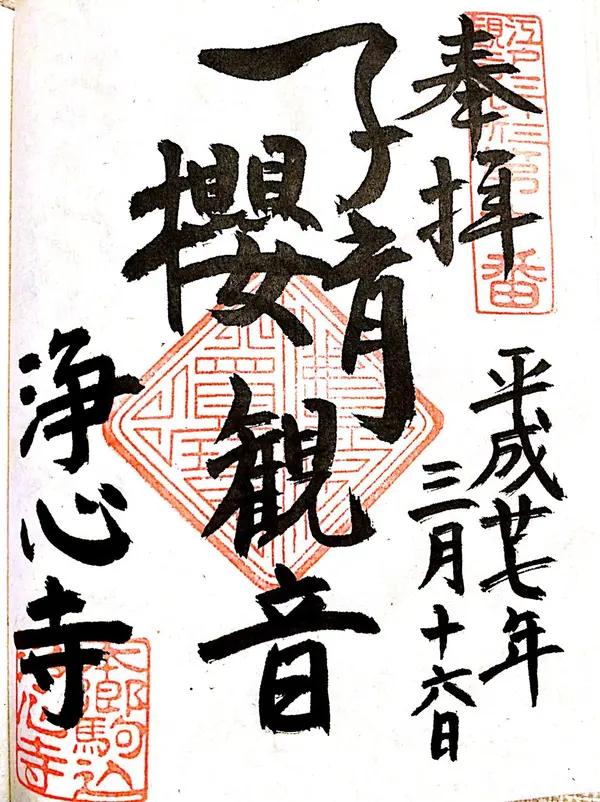 奉拝
江戸三十三
番
平成廿七年
三月十六日
子育
櫻観音
浄心寺
本郷駒込
浄心寺